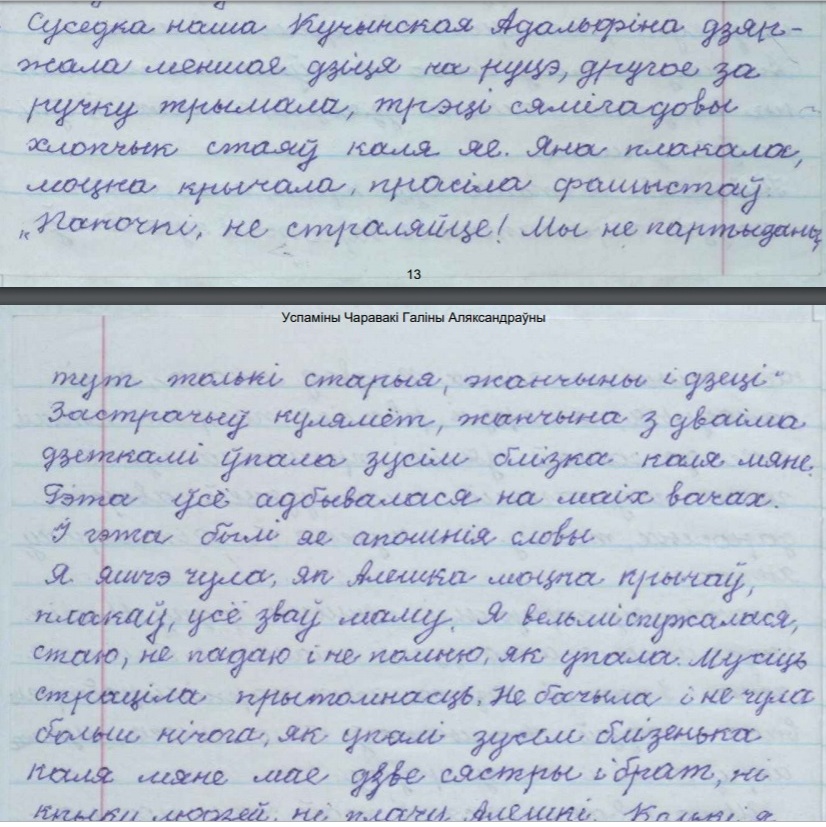 Суседка наша Кучынская Адальфіна дзяр-
жала меншае дзіця на руцэ, другое за
ручку трымала, трэці сямігадовы
хлопчык стаяў каля яе. Яна плакала,
моцна крычала, прасіла фашыстаў.
„Паночкі, не страляйце! Мы не партызаны,
13
Успаміны Чаравакі Галіны Аляксандраўны
тут толькі старыя, жанчыны і дзеці“
Застрачыў кулямёт, жанчына з дваіма
дзеткамі ўпала зусім блізка каля мяне.
Гэта ўсё адбывалася на маіх вачах.
І гэта былі яе апошнія словы
Я яшчэ чула, як Алешка моцна крычаў,
плакаў, усё зваў маму. Я вельмі спужалася,
стаю, не падаю і не помню, як упала. Мусіць
страціла прытомнасць. Не бачыла і не чула
больш нічога, як упалі зусім блізенька
каля мяне мае дзве сястры і брат, ні
крыку людзей, ні плачу Алешкі.